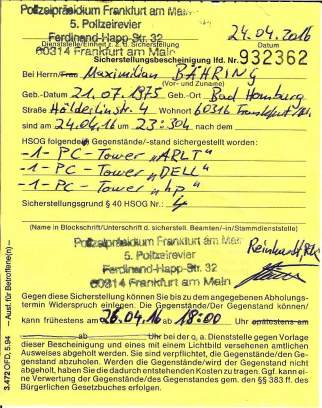 Polizeipräsidium Frankfurt am Main
5. Polizeirevier
Ferdinand-Happ-Str. 32
60314 Frankfurt am Main
24.04.2016
Dienststelle/Einheit z. B. Sicherstellung
Datum
Sicherstellungsbescheinigung lfd. Nr. 932362
Bei Herrn/Frau Maximilian BÄHRING
(Vor- und Zuname)
Geb.-Datum 21.07.1975 Geb.-Ort Bad Homburg
Straße Hölderlinstr. 4 Wohnort 60316 Frankfurt/M.
sind am 24.04.16 um 23:30h nach dem
HSOG folgende Gegenstände/-stand sichergestellt worden:
-1- PC-Tower „ARLT“
-1- PC-Tower „DELL“
-1- PC-Tower „hp“
Sicherstellungsgrund § 40 HSOG Nr.: 4
(Name in Blockschrift/Unterschrift d. sicherstell. Beamten/-in/Stammdienststelle)
Polizeipräsidium Frankfurt am Main
5. Polizeirevier
Ferdinand-Happ-Str. 32
60314 Frankfurt am Main
Reinhardt,
Gegen diese Sicherstellung können Sie bis zu dem angegebenen Abholungs-
termin Widerspruch einlegen. Die Gegenstände/Der Gegenstand können/
kann frühestens am 26.04.16 ab 18:00 Uhr spätestens am
ab Uhr bei der o. a. Dienststelle gegen Vorlage
dieser Bescheinigung und eines mit einem Lichtbild versehenen amtlichen
Ausweises abgeholt werden. Sie sind verpflichtet, die Gegenstände/den Ge-
genstand abzuholen. Werden die Gegenstände/wird der Gegenstand nicht
abgeholt, haben Sie die dadurch entstehenden Kosten zu tragen. Ggf. kann ei-
ne Verwertung der Gegenstände/des Gegenstandes gem. den §§ 383 ff. des
Bürgerlichen Gesetzbuches erfolgen.
3.472 OFD, 5.94 – Ausf. für Betroffene(n) –